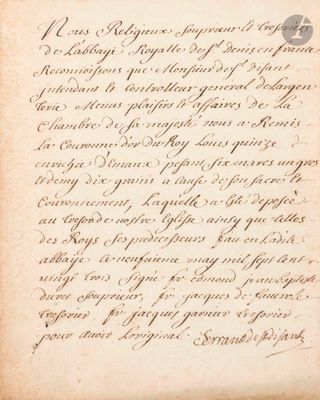 Nous Religieux Souprieur et Tresoriers
de L'abbaye Royalle de St. Denis en france
Reconnoissons que Monsieur de St. Disant
Intendant et Controlleur general de Largen
terie Menus plaisirs et affaires de La
Chambre de Sa majesté nous a Remis
La Couronne d'or du Roy Louis quinze
enrichie d'Emaux pesant Six marcs un gros
et demy dix grains a Cause de son Sacre et
Couronnement, Laquelle a esté deposée
au tresor de nostre Eglise ainsy que celles
des Roys Ses predecesseurs fait en Ladite
abbaye Le neufuieme may mil Sept cent
vingt trois Signé fr edmond jean baptiste
duret Souprieur, fr jacques de
Tresorier, fr jacques garnier tresorier
pour avoir L'original. Serrand de St disant